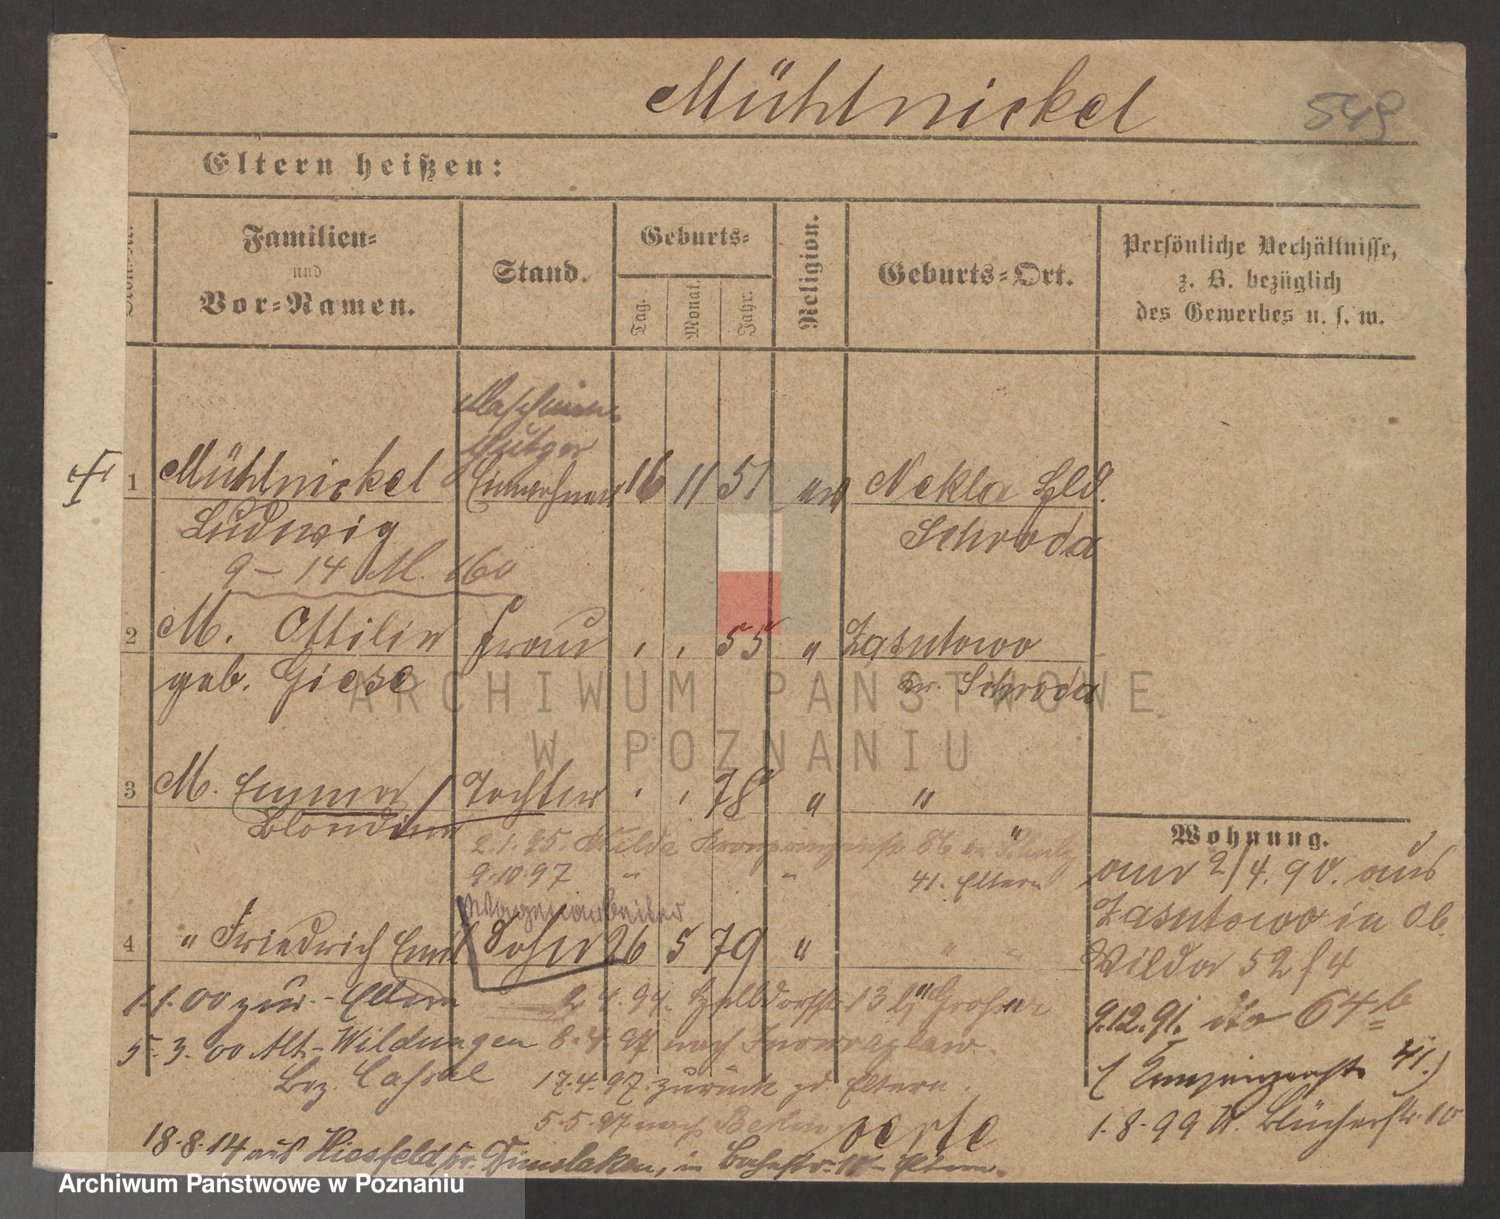 Mühlnickel 548
Eltern heißen:
Familien-
und
Vor-Namen.
Stand.
Geburts-
Tag.
Monat.
Jahr.
Religion.
Geburts-Ort.
Persönliche Verhältnisse,
z. B. bezüglich
des Gewerbes u. s. w.
Maschinen
putzer
1 Mühlnickel Einwohner 16 11 51 ev Nekla Hld.
Ludwig Schroda
9 - 14 M. 160
2 M. Ottilie Frau , , 55 " Zasutowo
geb. Giese Kr. Schroda
3 M. Emma Tochter , , 78 " "
Blondine
2.1.95. Wilda Kronprinzenstr. 86
9.10.97 " " 41. Eltern
Wohnung.
am 2/4. 90. aus
Zasutowo in Ob.
Wilda 52 f 4
9.12.91. dto 64 b
41.)
1.8.99 Blücherstr. 10
Wagenarbeiter
4 " Friedrich Emil Sohn 26 5 79 " " "
1.1.00 zur. Eltern
5.3.00 Alt-Wildungen
Bez. Cassel
13
8.4.97 nach Inowrazlaw.
17.4.97 zurück zd. Eltern.
5.5.97 nach Berlin
18.8.14 aus Hiesfeld Kr. Dinslaken, in Eltern.
ARCHIWUM PAŃSTWOWE
W POZNANIU
Archiwum Państwowe w Poznaniu